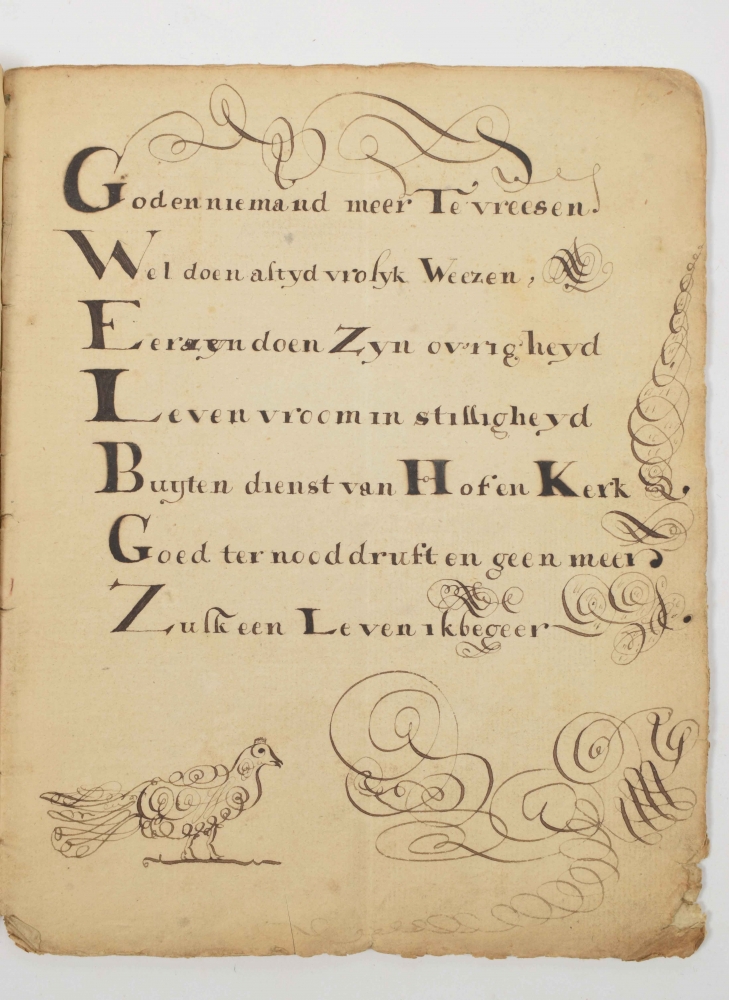 God en niemand meer Te vreesen.
Wel doen altyd vrolyk Weezen,
Eer zyn doen Zyn overigheyd
Leven vroom in stilligheyd
Buyten dienst van Hof en Kerk
Goed ter nooddruft en geen meer
Zulk een Leven ik begeer